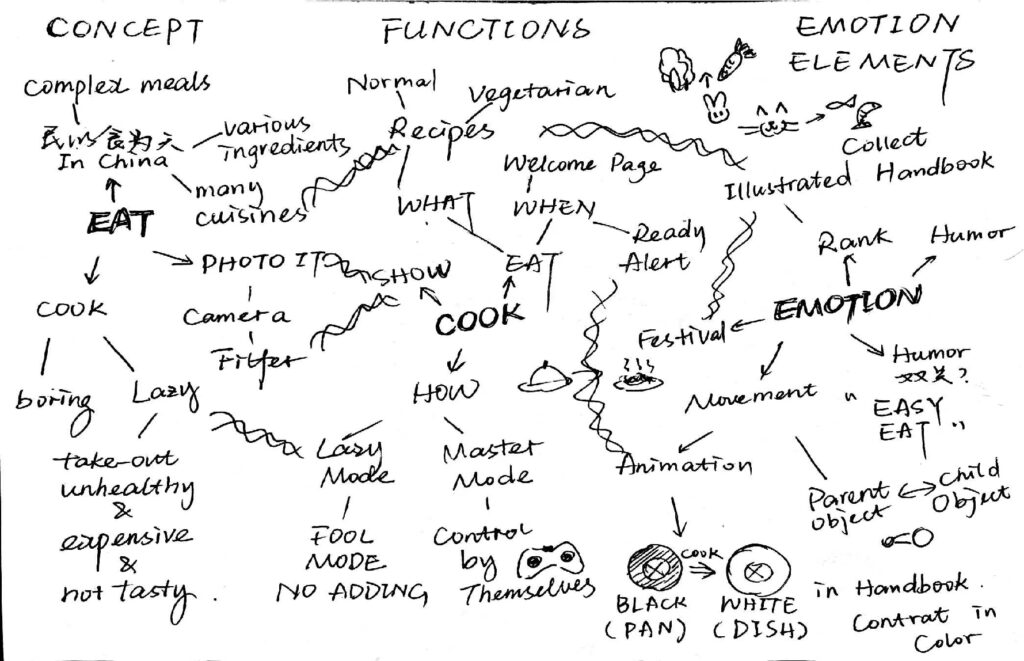 CONCEPT
FUNCTIONS
EMOTION
ELEMENTS
Complex meals
民以食为天
In China
various
ingredients
many
cuisines
EAT
PHOTO IT
Camera
Filter
COOK
boring
Lazy
take-out
unhealthy
&
expensive
&
not tasty.
Normal
Vegetarian
Recipes
WHAT
Welcome Page
WHEN
Ready
Alert
EAT
SHOW
COOK
HOW
Lazy
Mode
FOOL
MODE
NO ADDING
Master
Mode
Control
by
Themselves
Collect
Illustrated Handbook
Rank
Humor
EMOTION
Festival
Humor
双关?
"EASY
EAT"
Movement
Animation
Parent
Object
Child
Object
COOK
BLACK
(PAN)
WHITE
(DISH)
in Handbook.
Contrat in
Color